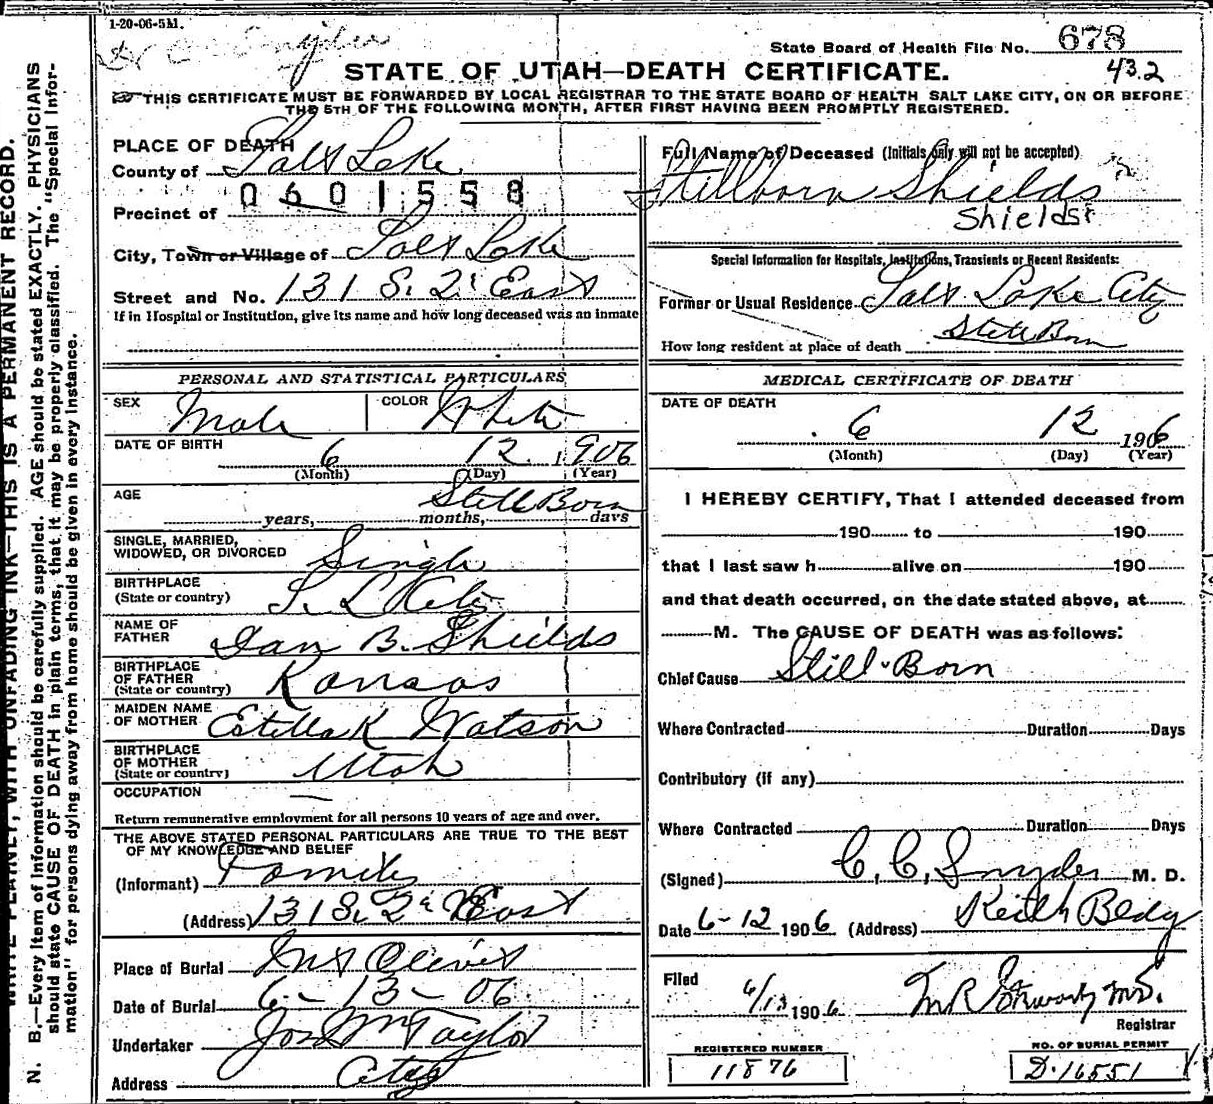 1-20-06-5M.
State Board of Health File No. 678
43.2
STATE OF UTAH—DEATH CERTIFICATE.
THIS CERTIFICATE MUST BE FORWARDED BY LOCAL REGISTRAR TO THE STATE BOARD OF HEALTH SALT LAKE CITY, ON OR BEFORE
THE 5TH OF THE FOLLOWING MONTH, AFTER FIRST HAVING BEEN PROMPTLY REGISTERED.
WRITE PLAINLY, WITH UNFADING INK—THIS IS A PERMANENT RECORD.
N. B.—Every item of information should be carefully supplied. AGE should be stated EXACTLY. PHYSICIANS
should state CAUSE OF DEATH in plain terms, that it may be properly classified. The "Special Infor-
mation" for persons dying away from home should be given in every instance.
PLACE OF DEATH
County of Salt Lake
0601558
Precinct of
City, Town or Village of Salt Lake
Street and No. 131 S. 2 East
If in Hospital or Institution, give its name and how long deceased was an inmate
PERSONAL AND STATISTICAL PARTICULARS
SEX Male COLOR White
DATE OF BIRTH 6 12 1906
(Month) (Day) (Year)
AGE Still Born
years, months, days
SINGLE, MARRIED,
WIDOWED, OR DIVORCED Single
BIRTHPLACE
(State or country) S. L. City
NAME OF
FATHER Dan B. Shields
BIRTHPLACE
OF FATHER
(State or country) Kansas
MAIDEN NAME
OF MOTHER Estella K Watson
BIRTHPLACE
OF MOTHER
(State or country) Utah
OCCUPATION —
Return remunerative employment for all persons 10 years of age and over.
THE ABOVE STATED PERSONAL PARTICULARS ARE TRUE TO THE BEST
OF MY KNOWLEDGE AND BELIEF
(Informant) Family
(Address) 131 S. 2d East
Place of Burial Mt Olivet
Date of Burial 6-13-06
Undertaker Jos Wm Taylor
Address City
Full Name of Deceased (Initials only will not be accepted)
Stillborn Shields
Shields
Special Information for Hospitals, Institutions, Transients or Recent Residents:
Former or Usual Residence Salt Lake City
How long resident at place of death Still Born
MEDICAL CERTIFICATE OF DEATH
DATE OF DEATH
6 12 1906
(Month) (Day) (Year)
I HEREBY CERTIFY, That I attended deceased from
190 to 190
that I last saw h alive on 190
and that death occurred, on the date stated above, at
M. The CAUSE OF DEATH was as follows:
Chief Cause Still-Born
Where Contracted Duration Days
Contributory (if any)
Where Contracted Duration Days
(Signed) C. C. Snyder M. D.
Date 6-12 1906 (Address) Keith Bldg
Filed 6/13 1906 M R Stewart MD.
Registrar
REGISTERED NUMBER
11876
NO. OF BURIAL PERMIT
D.16551